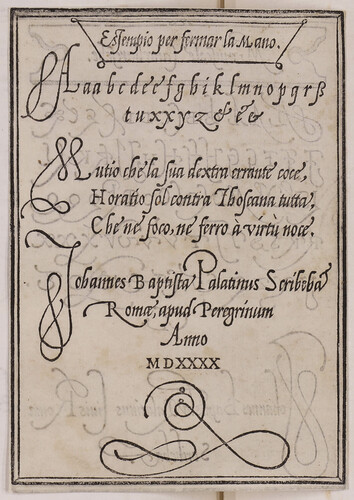 Essempio per fermar la Mano.
Aabcdeefghiklmnopqrsß
tuxxyz&e&
Mutio che la sua dextra errante coce,
Horatio sol contra Thoscana tutta,
Che ne foco, ne ferro à virtù noce.
Iohannes Baptista Palatinus Scribebat
Romæ, apud Peregrinum
Anno
MDXXXX